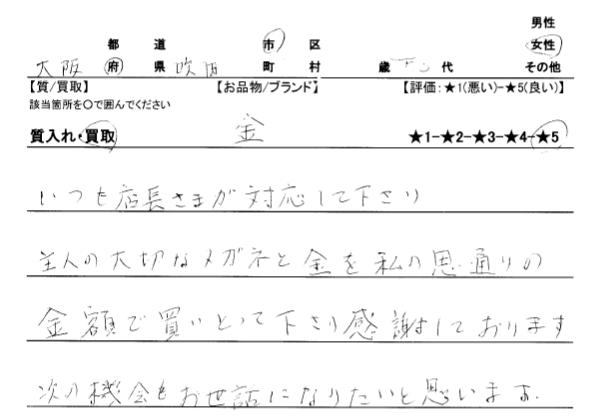 男性
都 道 市 区 女性
大阪 府 県 吹田 町 村 歳 代 その他
【質/買取】 【お品物/ブランド】 【評価:★1(悪い)-★5(良い)】
該当箇所を〇で囲んでください
質入れ・買取 金 ★1-★2-★3-★4-★5
いつも店長さまが対応して下さり
主人の大切なメガネと金を私の思通りの
金額で買いとって下さり感謝しております
次の機会もお世話になりたいと思います。